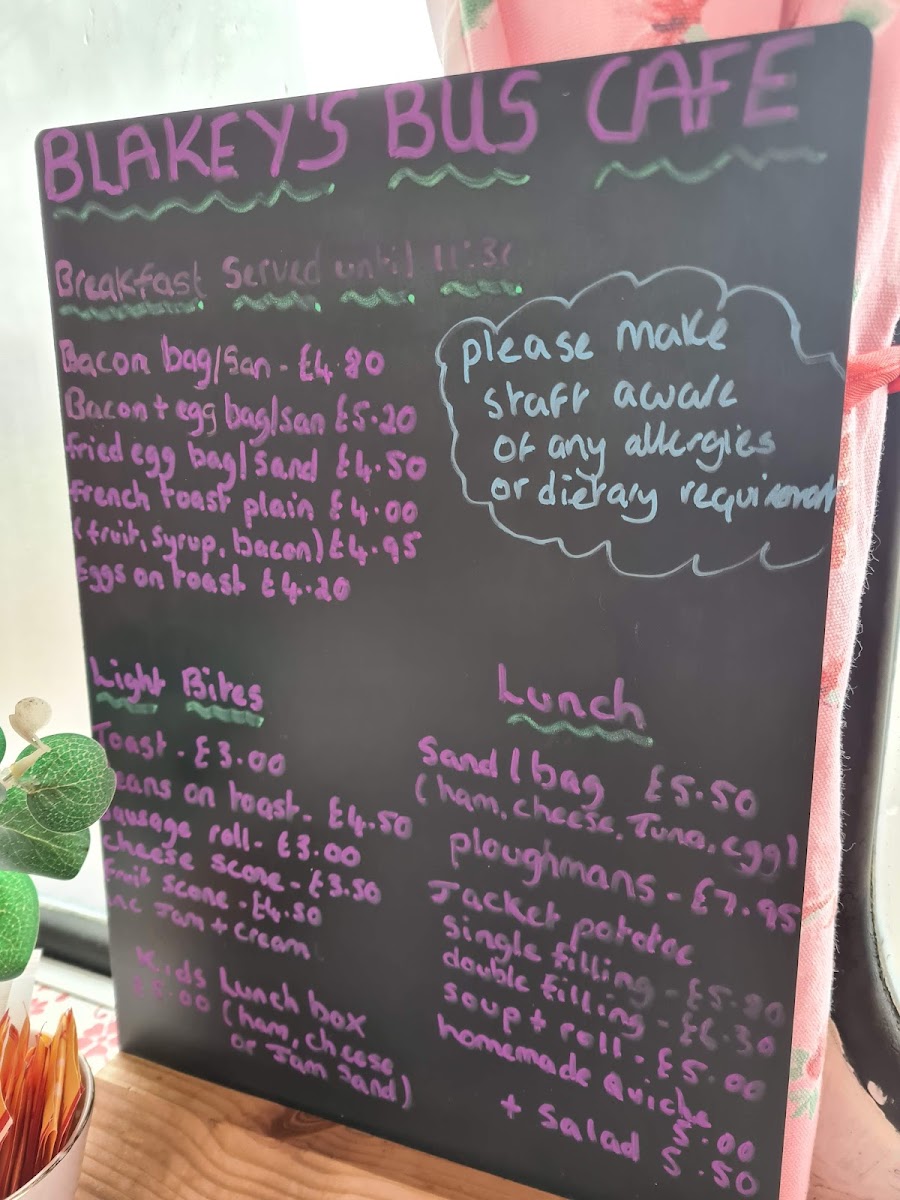 BLAKEY'S BUS CAFE
Breakfast Served until 11:30
Bacon bag/san - £4.80
Bacon + egg bag/san £5.20
fried egg bag/sand £4.50
french toast plain £4.00
(fruit, syrup, bacon) £4.95
Eggs on toast £4.20
please make
staff aware
of any allergies
or dietary requirements
Light Bites
Toast - £3.00
Beans on toast - £4.50
sausage roll - £3.00
cheese scone - £3.50
fruit scone - £4.50
inc Jam + cream
Kids Lunch box
£5.00 (ham, cheese
or Jam sand)
Lunch
Sand / bag £5.50
(ham, cheese, Tuna, egg)
ploughmans - £7.95
Jacket potatoe
single filling - £5.80
double filling - £6.30
soup + roll - £5.00
homemade Quiche
5.00
+ salad 5.50